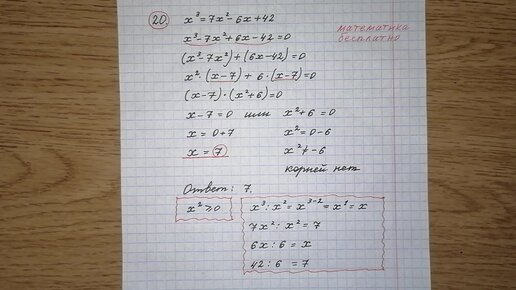 20 x³=7x²-6x+42
математика
бесплатно
x³-7x²+6x-42=0
(x³-7x²)+(6x-42)=0
x²·(x-7)+6·(x-7)=0
(x-7)·(x²+6)=0
x-7=0 или x²+6=0
x=0+7 x²=0-6
x=7 x²≠-6
корней нет
Ответ: 7.
x²≥0
x³:x²=x³⁻²=x¹=x
7x²:x²=7
6x:6=x
42:6=7